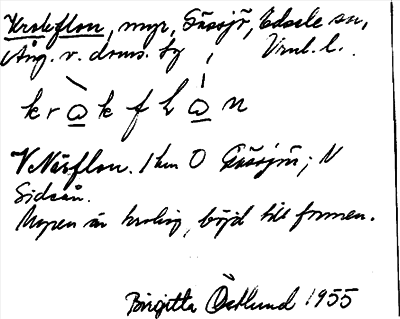 Krokflon, myr, Gåssjö, Edsele sn,
Ång. v. doms. by, Vnrl. l.
kråkflån
V Näsflon. 1 km O Gåssjön; N
Sidsån.
Myren är krokig, böjd till formen.
Birgitta Östlund 1955